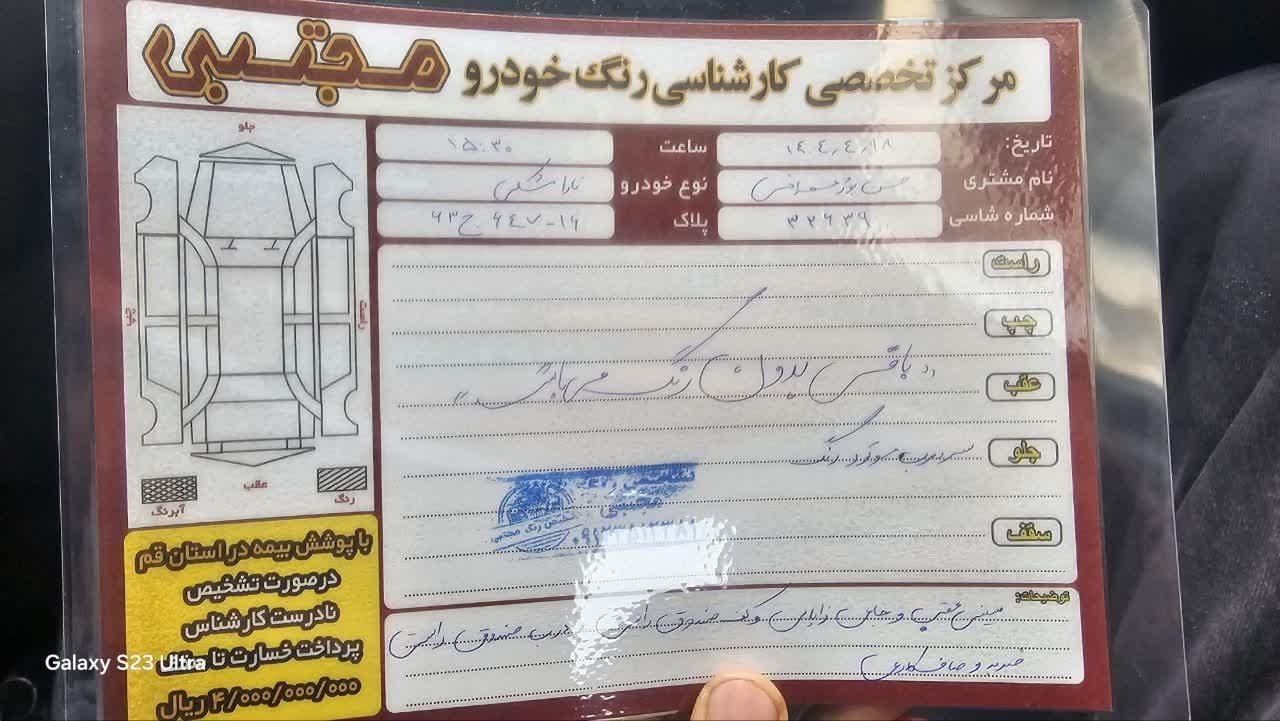 مرکز تخصصی کارشناسی رنگ خودرو مجتبی
تاریخ: ۱۴۰۴٫۴٫۱۸
ساعت ۱۵:۳۰
نام مشتری حسن
نوع خودرو تارا مشکی
شماره شاسی ۳۲۶۳۹
پلاک ۶۳ ج ۶۴۷-۱۶
جلو
چپ
راست
عقب
آبرنگ
رنگ
راست
چپ
عقب
"باقی بدون رنگ می باشد"
جلو
رنگ
سقف
مجتبی
تشخیص رنگ مجتبی
توضیحات:
سینی عقب و جای زاپاس و کف صندوق صندوق راست
ضربه و صافکاری
با پوشش بیمه در استان قم
درصورت تشخیص
نادرست کارشناس
پرداخت خسارت تا
۴/۰۰۰/۰۰۰/۰۰۰ ریال
Galaxy S23 Ultra